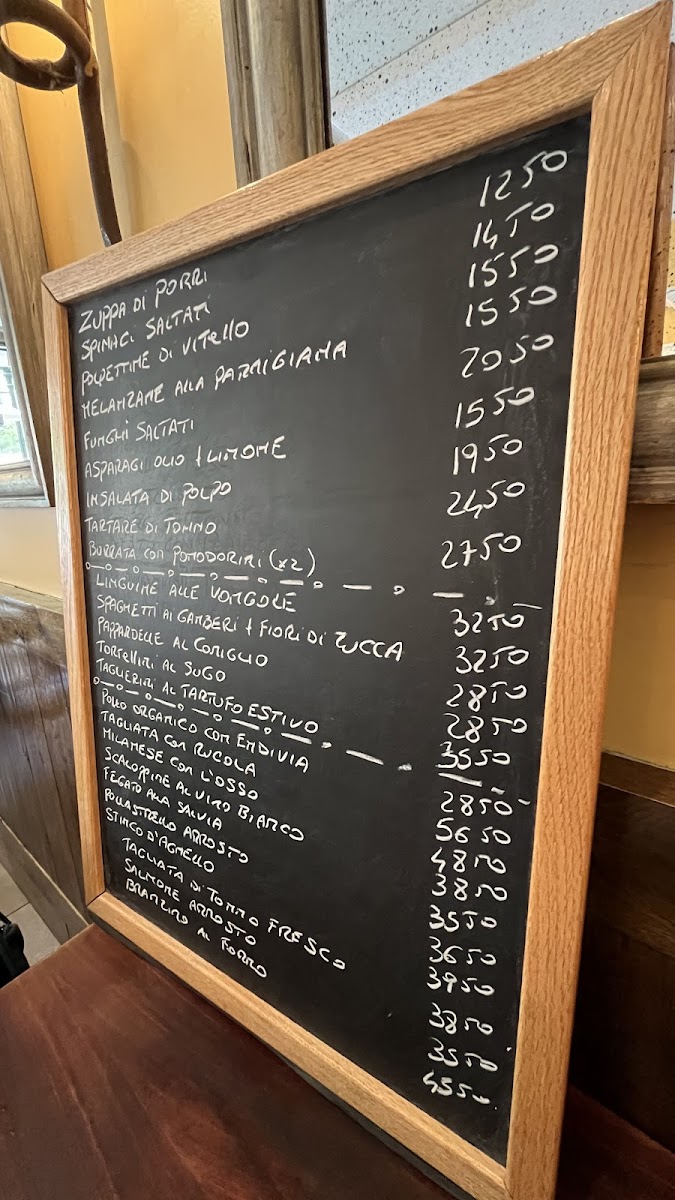 ZUPPA DI PORRI 1250
SPINACI SALTATI 1450
POLPETTINE DI VITELLO 1550
MELANZANE ALLA PARMIGIANA 1550
FUNGHI SALTATI 2050
ASPARAGI OLIO + LIMONE 1550
INSALATA DI POLPO 1950
TARTARE DI TONNO 2450
BURRATA CON POMODORINI (x2) 2750
LINGUINE ALLE VONGOLE 3250
SPAGHETTI AI GAMBERI + FIORI DI ZUCCA 3250
PAPPARDELLE AL CONIGLIO 2850
TORTELLINI AL SUGO 2850
TAGLIERINI AL TARTUFO ESTIVO 3550
POLLO ORGANICO CON ENDIVIA 2850
TAGLIATA CON RUCOLA 5650
MILANESE CON L'OSSO 4850
SCALOPPINE AL VINO BIANCO 3850
FEGATO ALLA SALVIA 3550
POLLASTRELLO ARROSTO 3650
STINCO D'AGNELLO 3950
TAGLIATA DI TONNO FRESCO 3850
SALMONE ARROSTO 3550
BRANZINO AL FORNO 4550